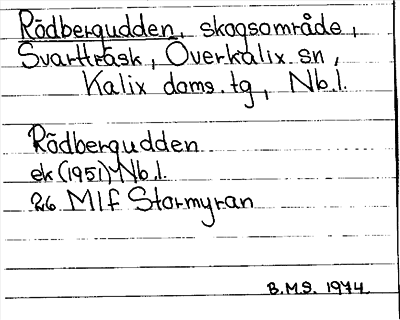 Rödbergudden, skogsområde,
Svartträsk, Överkalix sn,
Kalix doms. tg, Nb.l.
Rödbergudden
ek (1951) Nb.l.
26 Mlf Stormyran
B.M.S. 1974